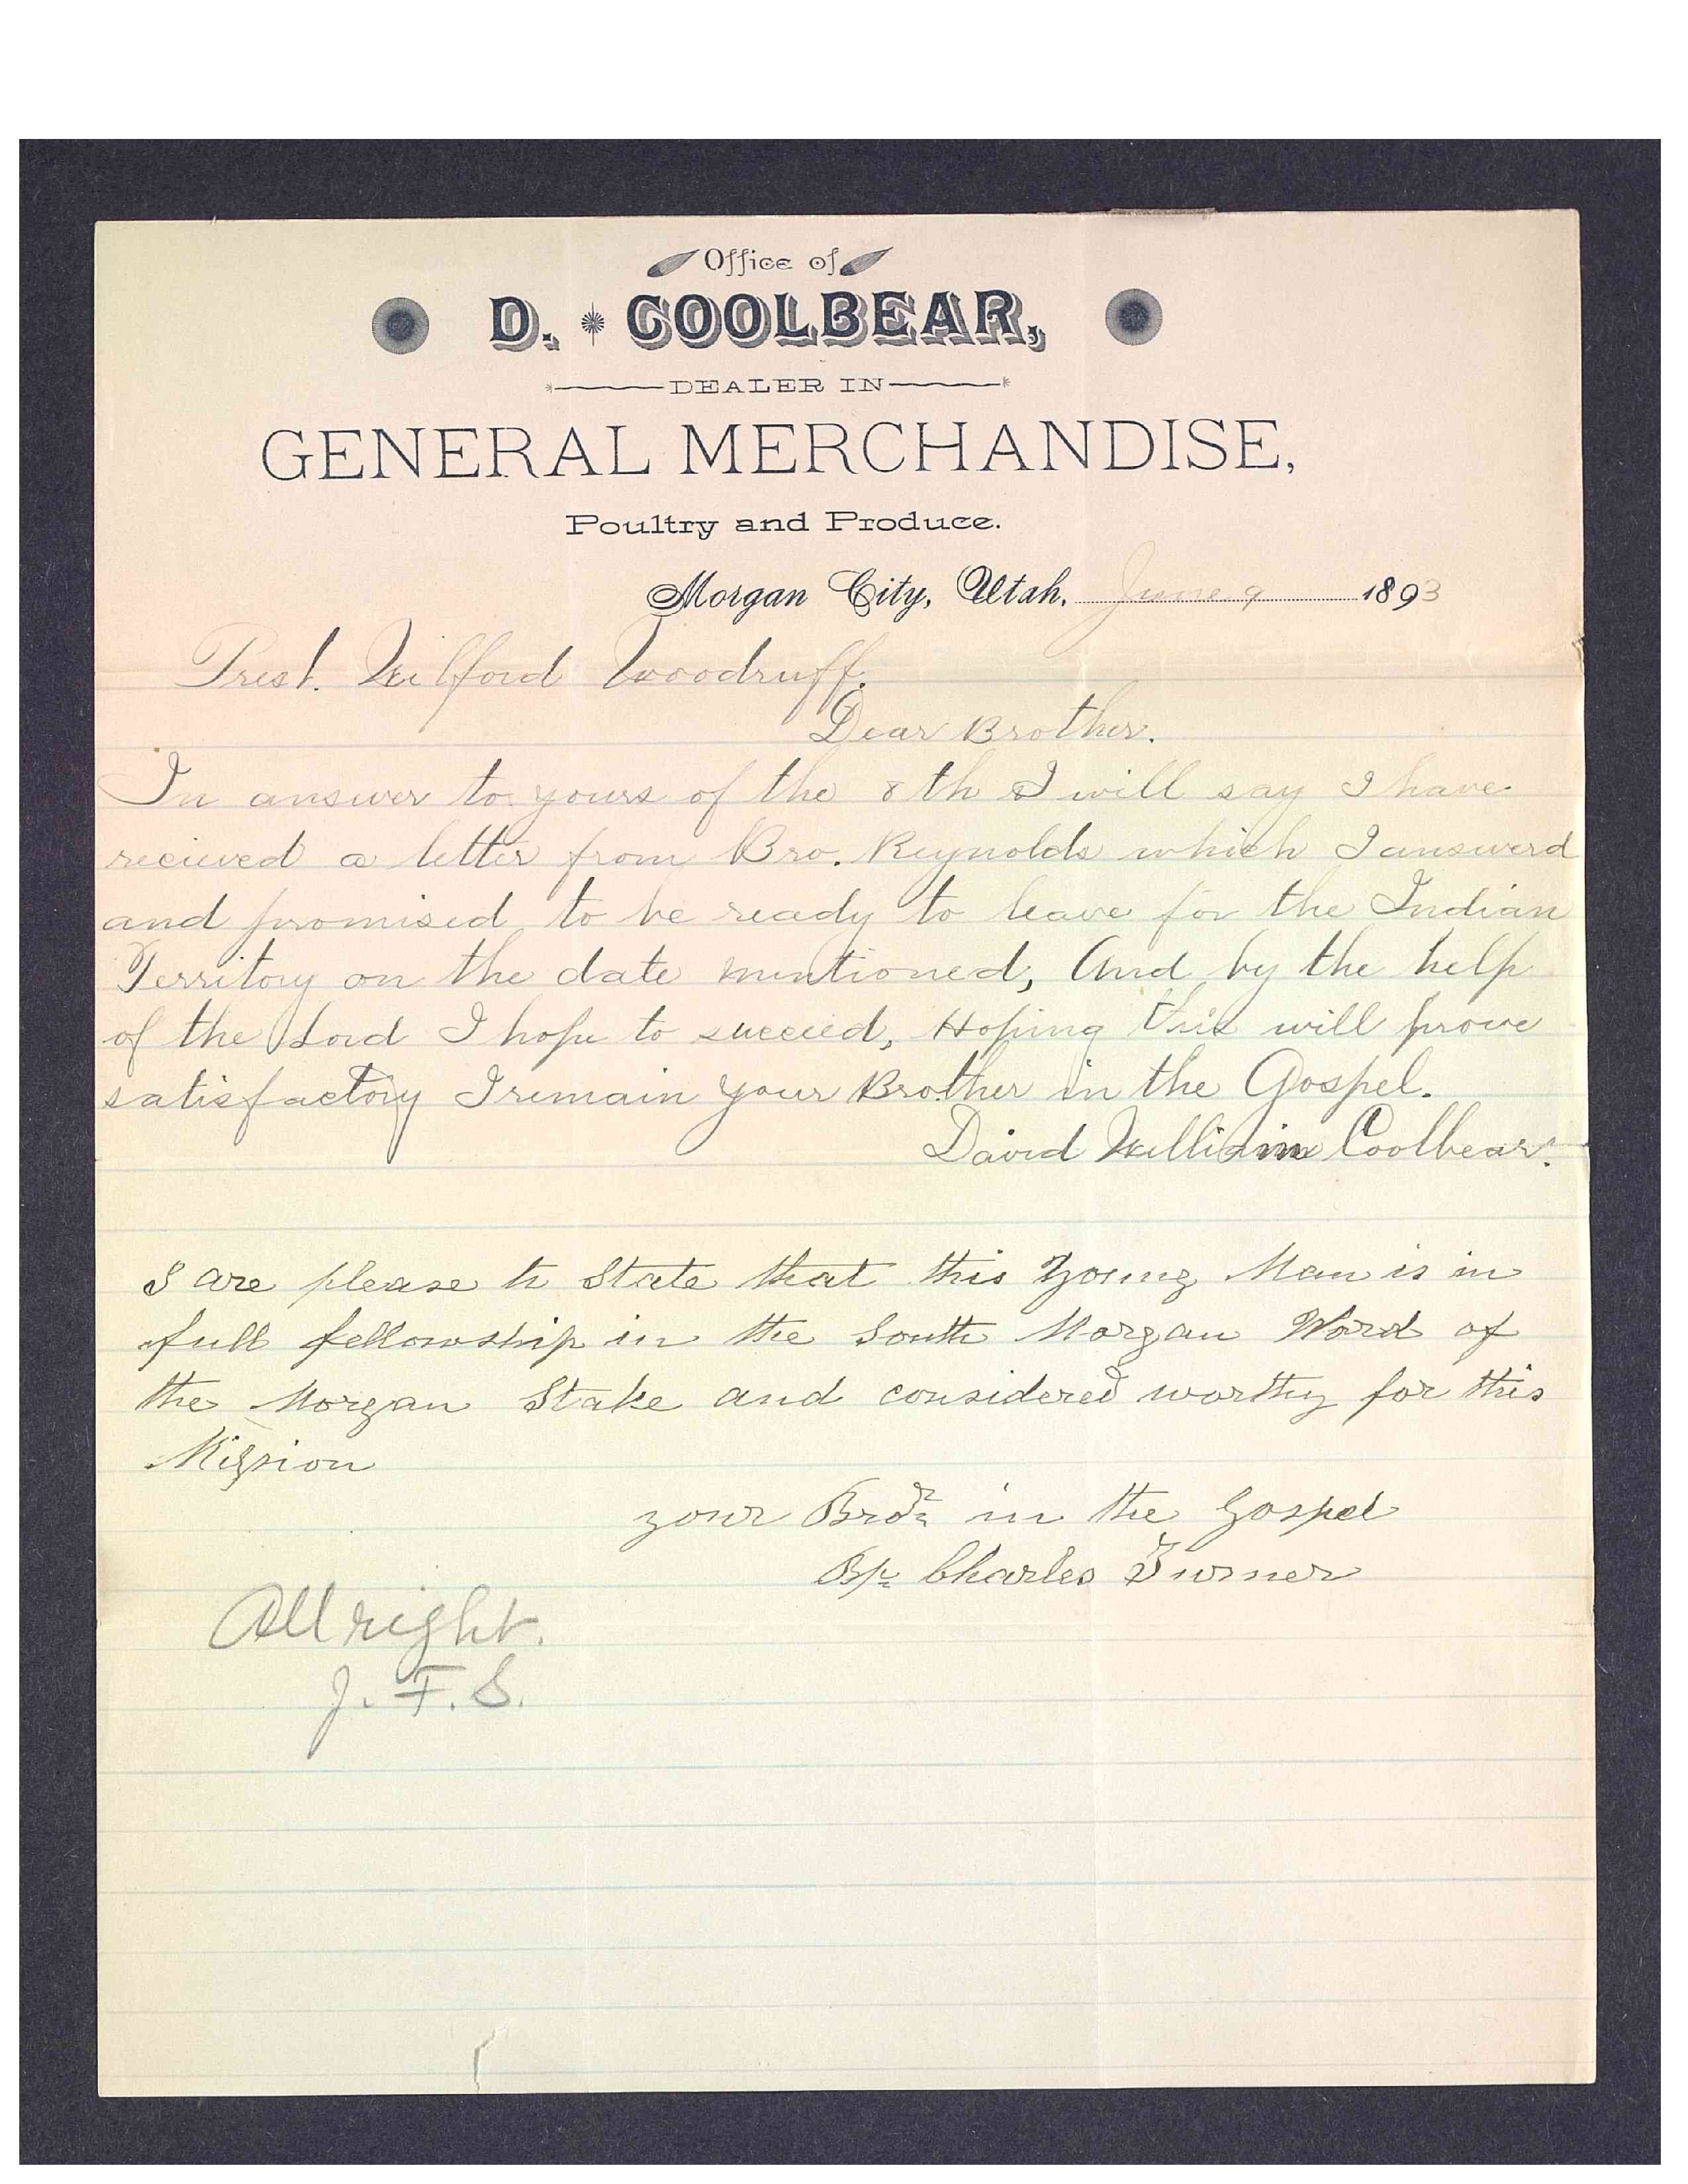 Office of
D. COOLBEAR,
DEALER IN
GENERAL MERCHANDISE,
Poultry and Produce.
Morgan City, Utah, June 9 1893
Prest. Wilford Woodruff.
Dear Brother.
In answer to yours of the 8th I will say I have
recieved a letter from Bro. Reynolds which I answerd
and promised to be ready to leave for the Indian
Territory on the date mentioned, And by the help
of the Lord I hope to succeed, Hoping this will prove
satisfactory I remain your Brother in the Gospel.
David William Coolbear.
I are please to State that this Young Man is in
full fellowship in the South Morgan Ward of
the Morgan Stake and considered worthy for this
Mission
your Bror in the Gospel
Bp Charles Turner
All right.
J. F. S.